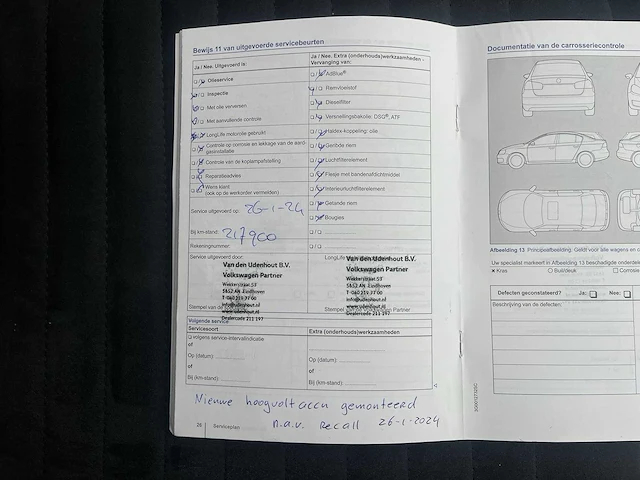 Bewijs 11 van uitgevoerde servicebeurten
Ja / Nee. Uitgevoerd is:
Olieservice
Inspectie
Met olie verversen
Met aanvullende controle
LongLife motorolie gebruikt
Controle op corrosie en lekkage van de aard-
gasinstallatie
Controle van de koplampafstelling
Reparatieadvies
Wens klant
(ook op de werkorder vermelden)
Service uitgevoerd op: 26-1-24
Bij km-stand: 217900
Rekeningnummer:
Service uitgevoerd door:
Van den Udenhout B.V.
Volkswagen Partner
Wekkerstraat 53
5652 AN Eindhoven
T 040 259 77 00
info@udenhout.nl
www.udenhout.nl
Dealercode 211 197
Stempel van de
Ja / Nee. Extra (onderhouds)werkzaamheden -
Vervanging van:
AdBlue®
Remvloeistof
Dieselfilter
Versnellingsbakolie: DSG®, ATF
Haldex-koppeling: olie
Geribde riem
Luchtfilterelement
Flesje met bandenafdichtmiddel
Interieurluchtfilterelement
Getande riem
Bougies
LongLife
Van den Udenhout B.V.
Volkswagen Partner
Wekkerstraat 53
5652 AN Eindhoven
T 040 259 77 00
info@udenhout.nl
www.udenhout.nl
Dealercode 211 197
Stempel van de Volkswagen Partner
Volgende service
Servicesoort
volgens service-intervalindicatie
of
Op (datum):
of
Bij (km-stand):
Extra (onderhouds)werkzaamheden
Op (datum):
of
Bij (km-stand):
Nieuwe hoogvolt accu gemonteerd
n.a.v. Recall 26-1-2024
26 Serviceplan
Documentatie van de carrosseriecontrole
Afbeelding 13 Principeafbeelding: Geldt voor alle wagens en
Uw specialist markeert in Afbeelding 13 beschadigde onderdelen
Kras Buil/deuk Corrosie
Defecten geconstateerd? Ja: Nee:
Beschrijving van de defecten: